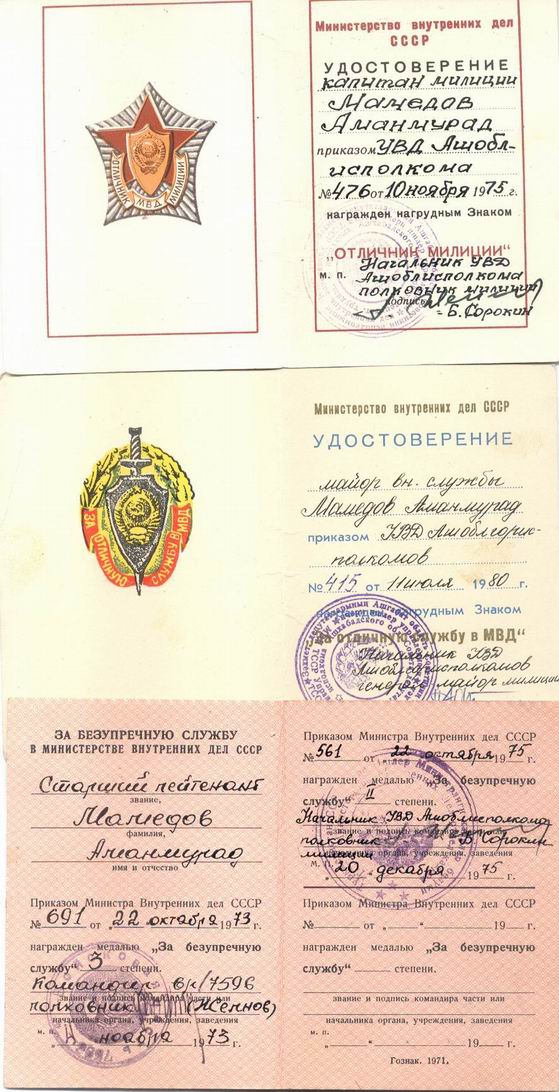 ОТЛИЧНИК МВД МИЛИЦИИ
Министерство внутренних дел
СССР
УДОСТОВЕРЕНИЕ
капитан милиции
Мамедов
Аманмурад
приказом УВД Ашобл-
исполкома
№ 476 от 10 ноября 1975 г.
награжден нагрудным Знаком
„ОТЛИЧНИК МИЛИЦИИ“
Начальник УВД
м. п. Ашоблисполкома
полковник милиции
подпись
= Б. Сорокин
ЗА ОТЛИЧНУЮ СЛУЖБУ В МВД
Министерство внутренних дел СССР
УДОСТОВЕРЕНИЕ
майор вн. службы
Мамедов Аманмурад
приказом УВД Ашоблгорис-
полкомов
№ 415 от 11 июля 1980 г.
нагрудным Знаком
"За отличную службу в МВД"
Начальник УВД
Ашоблгорисполкомов
генерал майор милиции
ЗА БЕЗУПРЕЧНУЮ СЛУЖБУ
В МИНИСТЕРСТВЕ ВНУТРЕННИХ ДЕЛ СССР
Старший лейтенант
звание,
Мамедов
фамилия,
Аманмурад
имя и отчество
Приказом Министра Внутренних Дел СССР
№ 691 от „22 октября 1973 г.
награжден медалью „За безупречную
службу“ 3 степени.
Командир в/ч 7596
звание и подпись командира части или
полковник (Жепнов)
начальника органа, учреждения, заведения
м. п.
ноября 1973 г.
Приказом Министра Внутренних Дел СССР
№ 561 от „22 октября 1975 г.
награжден медалью „За безупречную
службу“ II степени.
Начальник УВД Ашоблисполкома
звание и подпись командира части или
полковник Б. Сорокин
милиции
начальника органа, учреждения, заведения
м. п. „20 декабря 1975 г.
Приказом Министра Внутренних Дел СССР
№ от „ “ 19 г.
награжден медалью „За безупречную
службу“ степени.
звание и подпись командира части или
начальника органа, учреждения, заведения
м. п. „ “ 19 г.
Гознак. 1971.